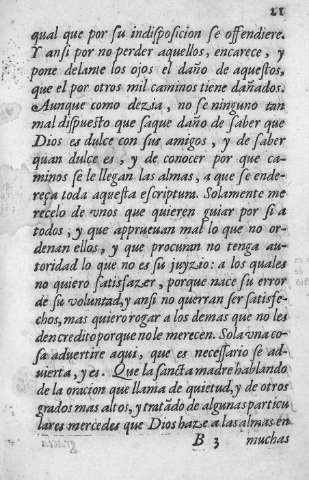 21
qual que por su indisposicion se offendiere.
Y ansi por no perder aquellos, encarece, y
pone delante los ojos el daño de aquestos,
que el por otros mil caminos tiene dañados.
Aunque como dezia, no se ninguno tan
mal dispuesto que saque daño de saber que
Dios es dulce con sus amigos, y de saber
quan dulce es, y de conocer por que ca-
minos se le llegan las almas, a que se ende-
reça toda aquesta escriptura. Solamente me
recelo de vnos que quieren guiar por si a
todos, y que aprueuan mal lo que no or-
denan ellos, y que procuran no tenga au-
toridad lo que no es su juyzio: a los quales
no quiero satisfazer, porque nace su error
de su voluntad, y ansi no querran ser satisfe-
chos, mas quiero rogar a los demas que no les
den credito porque no le merecen. Sola vna co-
sa aduertire aqui, que es necessario se ad-
uierta, y es. Que la sancta madre hablando
de la oracion que llama de quietud, y de otros
grados mas altos, y tratãdo de algunas particu
lares mercedes que Dios haze a las almas en
B 3 muchas